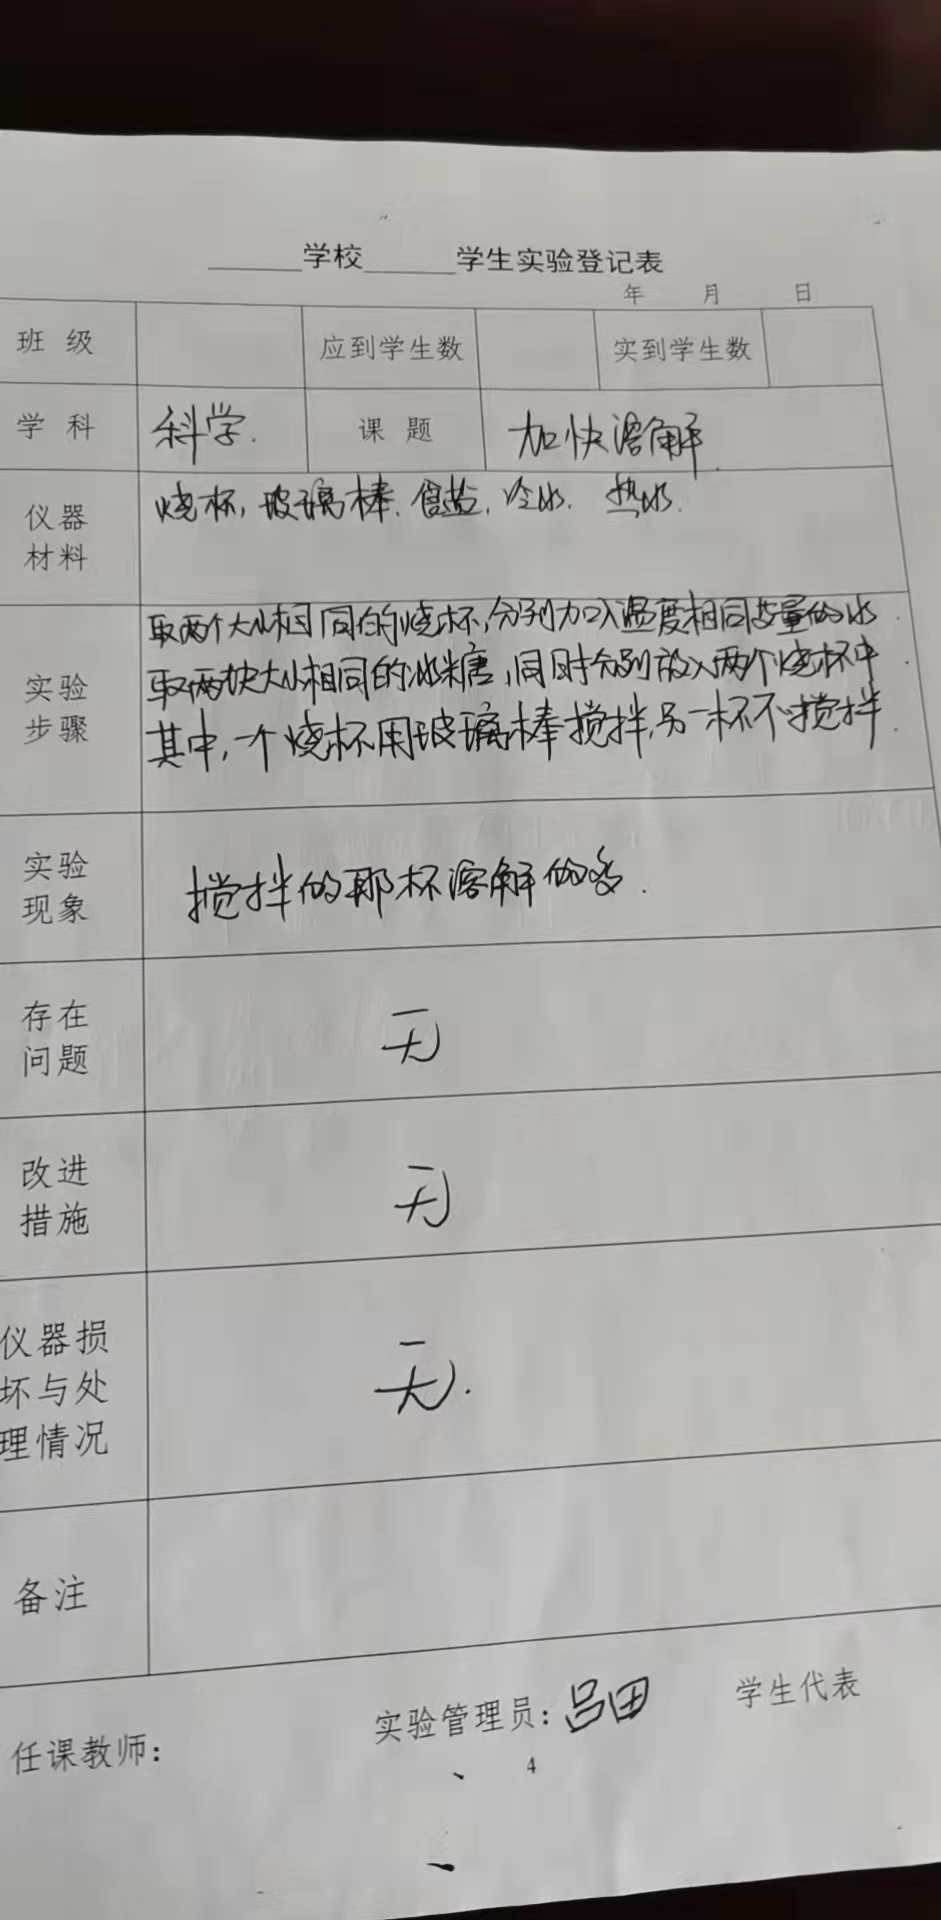 ______学校______学生实验登记表
年 月 日
班 级 应到学生数 实到学生数
学 科 科学. 课 题 加快溶解.
仪器
材料
烧杯, 玻璃棒. 食盐, 冷水. 热水.
实验
步骤
取两个大小相同的烧杯,分别加入温度相同等量的水.
取两块大小相同的冰糖,同时分别放入两个烧杯中.
其中,一个烧杯用玻璃棒搅拌,另一杯不搅拌.
实验
现象
搅拌的那杯溶解的多.
存在
问题
无
改进
措施
无
仪器损
坏与处
理情况
无.
备注
任课教师: 实验管理员: 吕田 学生代表
4